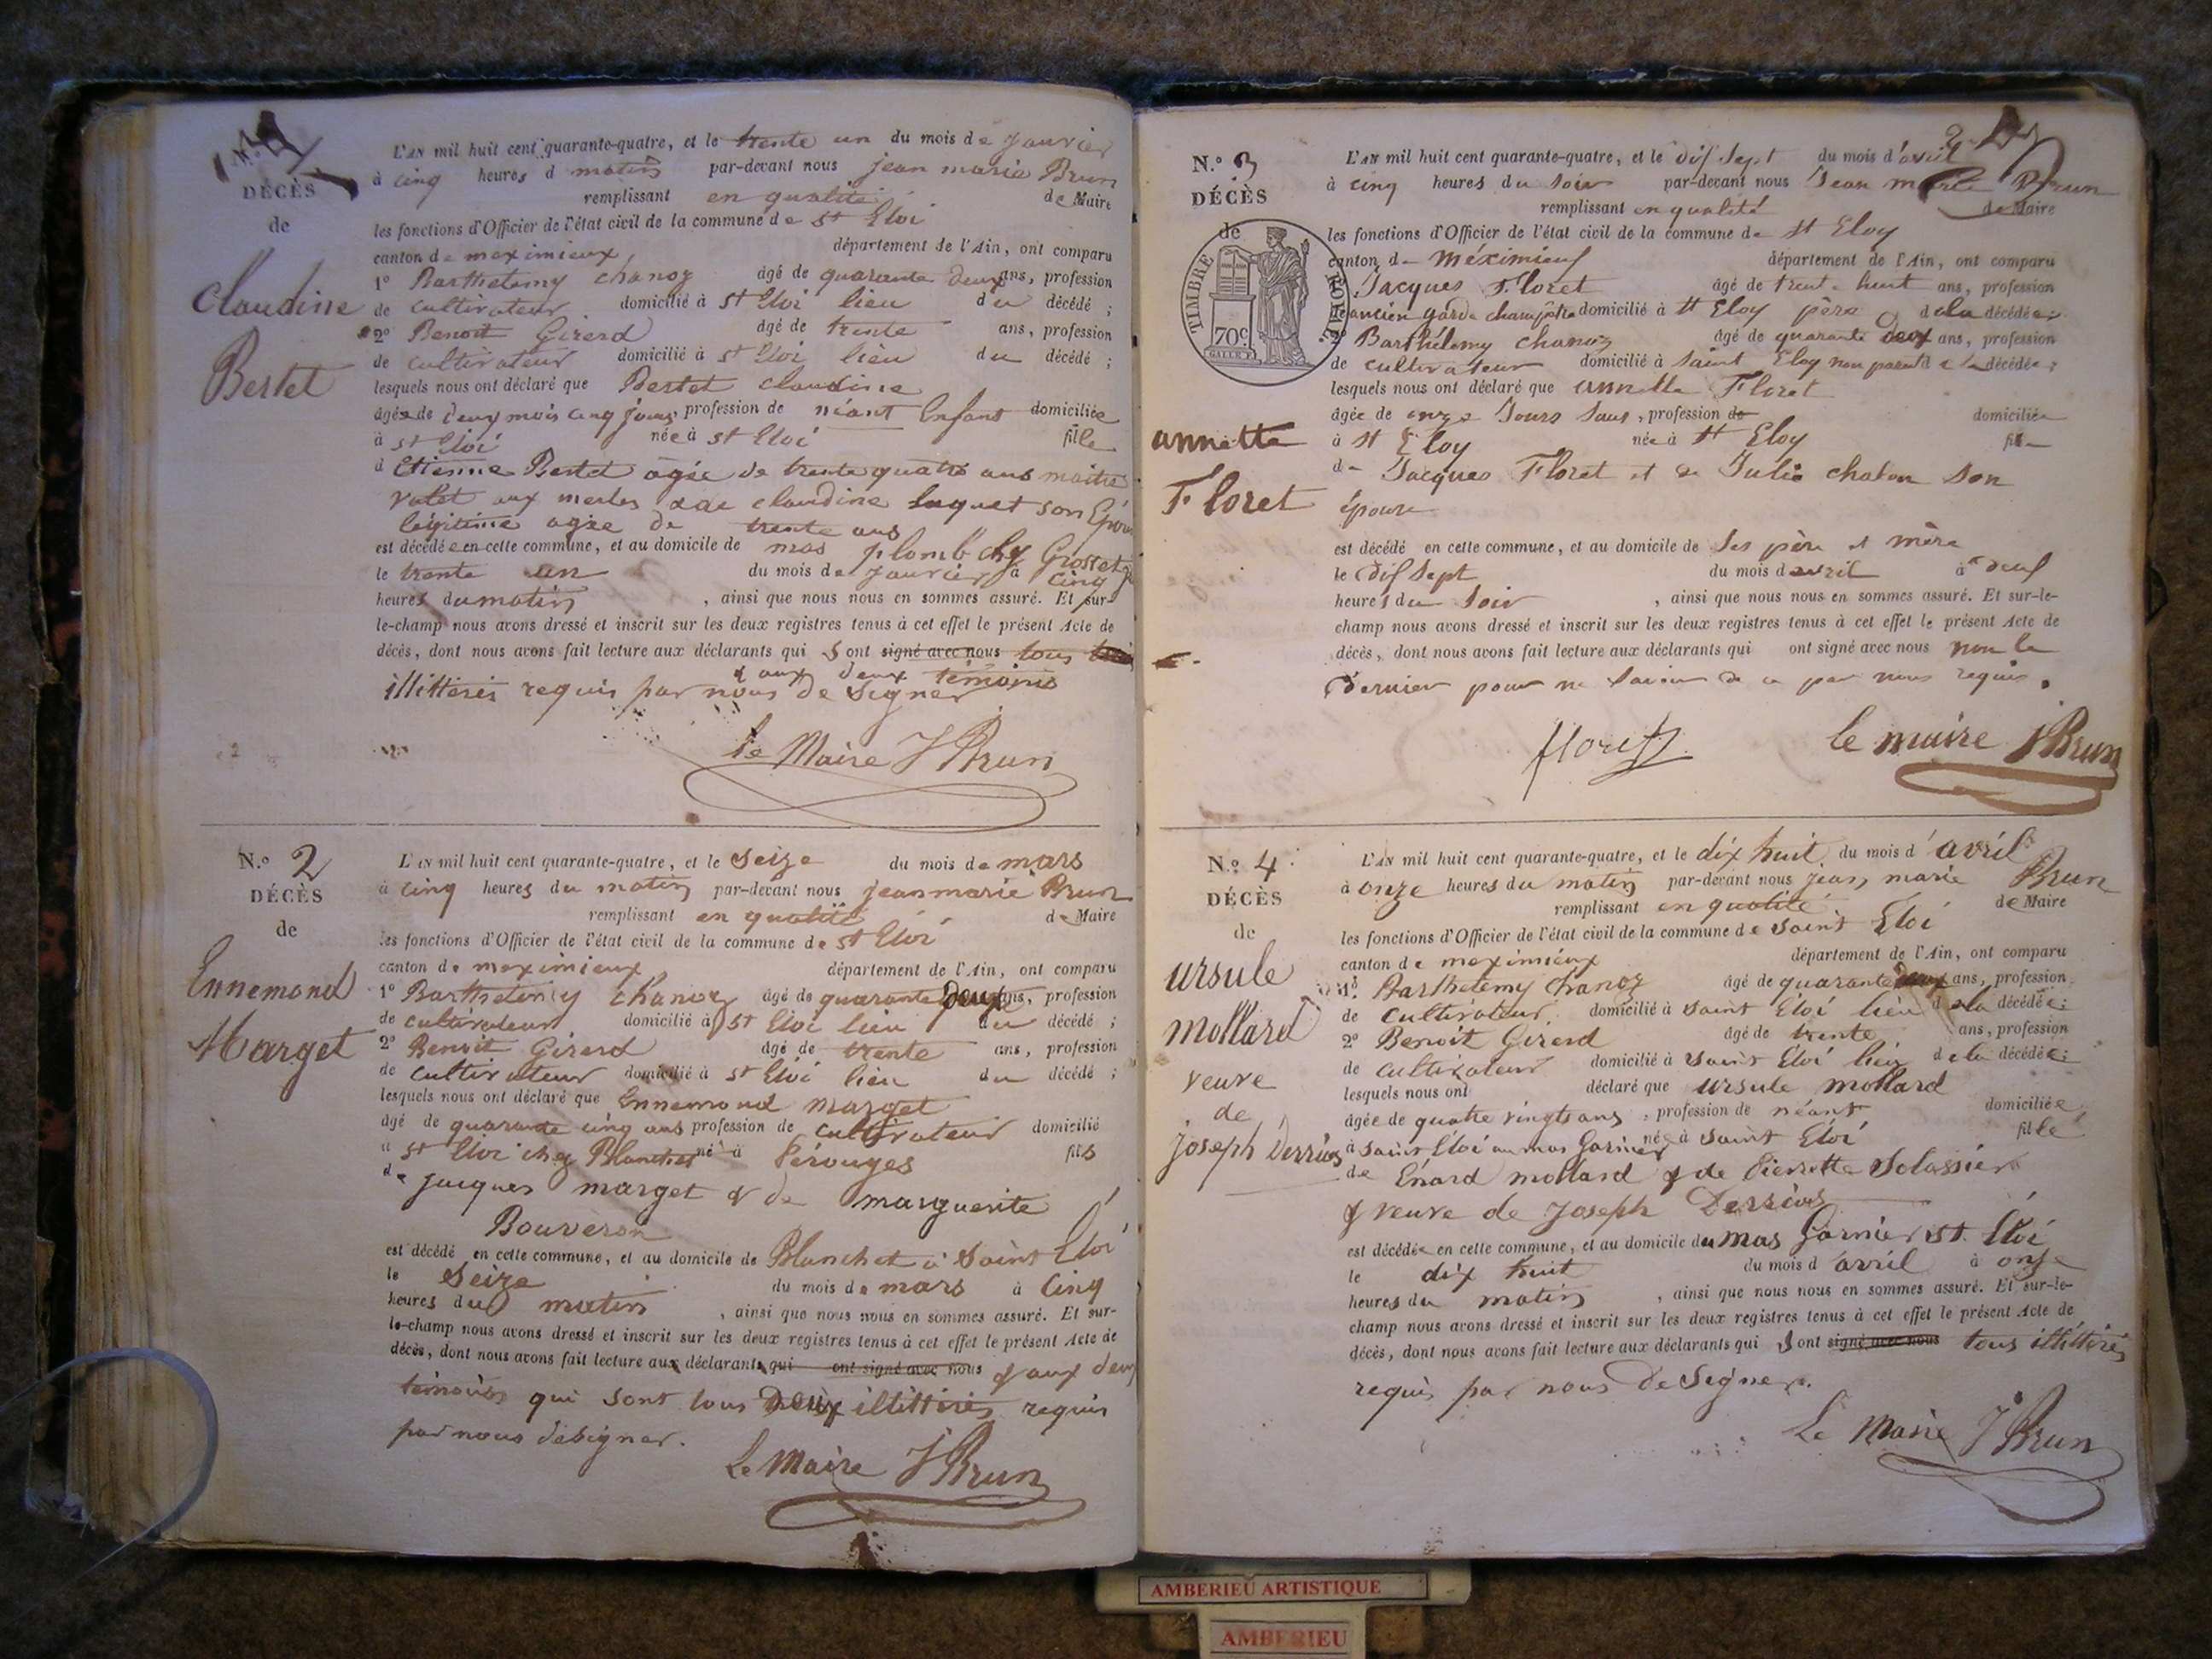 N.º 1
DÉCÈS
de
Claudine
Bertet
L'AN mil huit cent quarante-quatre, et le trente un du mois de Janvier
à cinq heures d matin par-devant nous jean marie Brun
remplissant en qualité de Maire
les fonctions d'Officier de l'état civil de la commune de st Eloi
canton de meximieux département de l'Ain, ont comparu
1º Barthelemy chanoz âgé de quarante deux ans, profession
de cultivateur domicilié à st Eloi lieu du décédé ;
2º Benoit Girerd âgé de trente ans, profession
de cultivateur domicilié à st Eloi lieu du décédé ;
lesquels nous ont déclaré que Bertet claudine
âgée de deux mois cinq jours, profession de néant Enfant domiciliée
à st Eloi née à st Eloi fille
d Etienne Bertet agée de trente quatre ans maitre
valet aux merles & de claudine Luquet son Epouse
légitime agée de trente ans
est décédée en cette commune, et au domicile de mas plomb chez Grosset
le trente un du mois de Janvier à cinq
heures du matin , ainsi que nous nous en sommes assuré. Et sur-
le-champ nous avons dressé et inscrit sur les deux registres tenus à cet effet le présent Acte de
décès, dont nous avons fait lecture aux déclarants qui sont signé avec nous tous
& aux deux témoins
illittérés requis par nous de signer
Le Maire J Brun
N.º 2
DÉCÈS
de
Ennemond
Marget
L'AN mil huit cent quarante-quatre, et le seize du mois de mars
à cinq heures du matin par-devant nous jean marie Brun
remplissant en qualité de Maire
les fonctions d'Officier de l'état civil de la commune de st Eloi
canton de meximieux département de l'Ain, ont comparu
1º Barthelemy chanoz âgé de quarante deux ans, profession
de cultivateur domicilié à st Eloi lieu du décédé ;
2º Benoit Girerd âgé de trente ans, profession
de cultivateur domicilié à st Eloi lieu du décédé ;
lesquels nous ont déclaré que Ennemond marget
âgé de quarante cinq ans profession de cultivateur domicilié
à st Eloi chez Blanchet né à Pérouges fils
de jacques marget & de marguerite
Bouveron
est décédé en cette commune, et au domicile de Blanchet à Saint Eloi
le Seize du mois de mars à cinq
heures du matin , ainsi que nous nous en sommes assuré. Et sur-
le-champ nous avons dressé et inscrit sur les deux registres tenus à cet effet le présent Acte de
décès, dont nous avons fait lecture aux déclarants qui ont signé avec nous & aux deux
témoins qui sont tous deux illittérés requis
par nous designer.
Le Maire J Brun
2
N.º 3
DÉCÈS
de
TIMBRE ROYAL
70c
annette
Floret
L'AN mil huit cent quarante-quatre, et le dix sept du mois d'avril
à cinq heures du soir par-devant nous Jean marie Brun
remplissant en qualité de Maire
les fonctions d'Officier de l'état civil de la commune de st Eloy
canton de Méximieux département de l'Ain, ont comparu
Jacques Floret âgé de trente huit ans, profession
de ancien garde champêtre domicilié à st Eloy père de la décédée ;
2º Barthélemy chanoz âgé de quarante deux ans, profession
de cultivateur domicilié à Saint Eloy non parent d e la décédée ;
lesquels nous ont déclaré que annette Floret
âgée de onze Jours sans , profession de domiciliée
à st Eloy née à st Eloy fille
de Jacques Floret et de Julie chaton son
épouse
est décédé en cette commune, et au domicile de ses père et mère
le dix sept du mois d avril à deux
heures du soir , ainsi que nous nous en sommes assuré. Et sur-le-
champ nous avons dressé et inscrit sur les deux registres tenus à cet effet le présent Acte de
décès, dont nous avons fait lecture aux déclarants qui ont signé avec nous non le
dernier pour ne savoir de ce par nous requis.
floret
le maire J Brun
N.º 4
DÉCÈS
de
ursule
mollard
veuve
de
joseph Derrias
L'AN mil huit cent quarante-quatre, et le dix huit du mois d'avril
à onze heures du matin par-devant nous jean marie Brun
remplissant en qualité de Maire
les fonctions d'Officier de l'état civil de la commune de saint Eloi
canton de meximieux département de l'Ain, ont comparu
1º Barthelemy chanoz âgé de quarante deux ans, profession
de cultivateur domicilié à saint Eloi lieu de la décédée ;
2º Benoit Girerd âgé de trente ans, profession
de cultivateur domicilié à saint Eloi lieu de la décédée ;
lesquels nous ont déclaré que ursule mollard
âgée de quatre vingts ans , profession de néant domiciliée
à saint Eloi au mas Garnier née à saint Eloi fille
de Enard mollard & de Pierrette Solassier
& veuve de joseph Derrias
est décédée en cette commune, et au domicile du mas Garnier st. Eloi
le dix huit du mois d'avril à onze
heures du matin , ainsi que nous nous en sommes assuré. Et sur-le-
champ nous avons dressé et inscrit sur les deux registres tenus à cet effet le présent Acte de
décès, dont nous avons fait lecture aux déclarants qui sont signé avec nous tous illittérés
requis par nous de signer.
Le Maire J Brun
AMBERIEU ARTISTIQUE
AMBERIEU